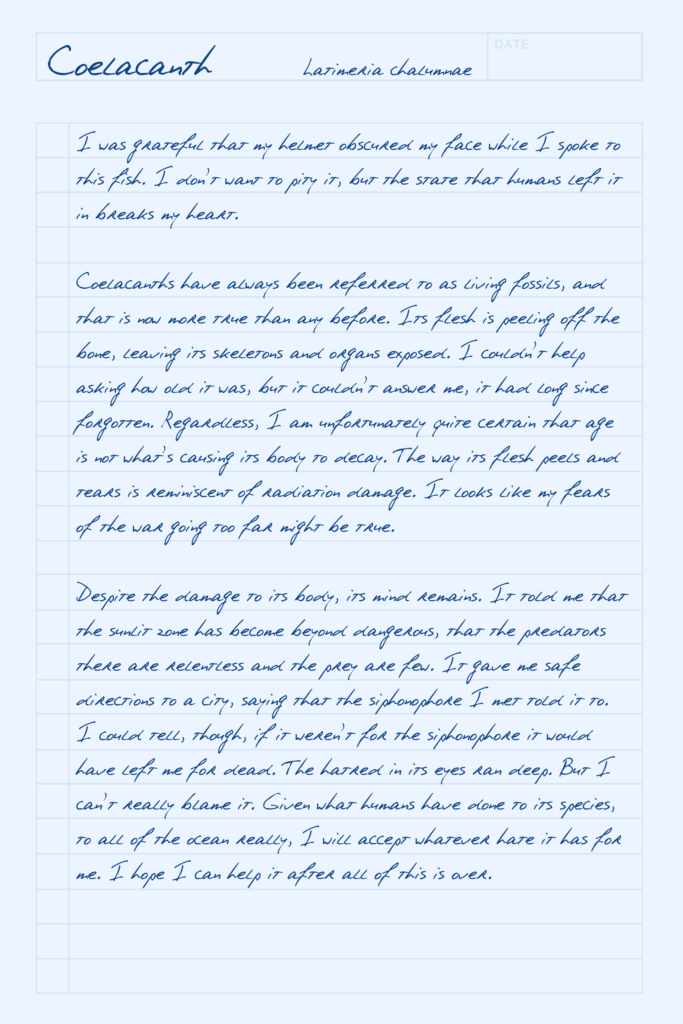 Coelacanth
Latimeria chalumnae
DATE
I was grateful that my helmet obscured my face while I spoke to
this fish. I don't want to pity it, but the state that humans left it
in breaks my heart.
Coelacanths have always been referred to as living fossils, and
that is now more true than any before. Its flesh is peeling off the
bone, leaving its skeletons and organs exposed. I couldn't help
asking how old it was, but it couldn't answer me, it had long since
forgotten. Regardless, I am unfortunately quite certain that age
is not what's causing its body to decay. The way its flesh peels and
tears is reminiscent of radiation damage. It looks like my fears
of the war going too far might be true.
Despite the damage to its body, its mind remains. It told me that
the sunlit zone has become beyond dangerous, that the predators
there are relentless and the prey are few. It gave me safe
directions to a city, saying that the siphonophore I met told it to.
I could tell, though, if it weren't for the siphonophore it would
have left me for dead. The hatred in its eyes ran deep. But I
can't really blame it. Given what humans have done to its species,
to all of the ocean really, I will accept whatever hate it has for
me. I hope I can help it after all of this is over.